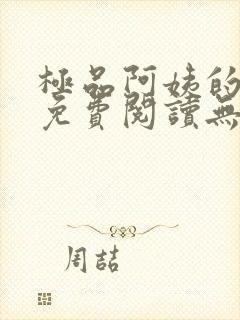 極品阿姨的
免費閱讀無
周喆